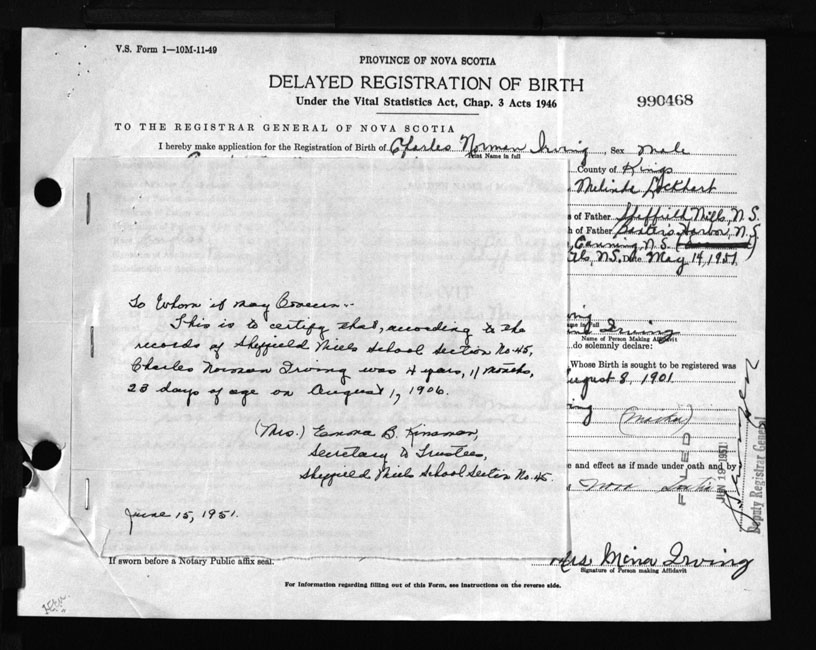 V.S. Form 1—10M-11-49
PROVINCE OF NOVA SCOTIA
DELAYED REGISTRATION OF BIRTH
Under the Vital Statistics Act, Chap. 3 Acts 1946
990468
TO THE REGISTRAR GENERAL OF NOVA SCOTIA
I hereby make application for the Registration of Birth of Charles Norman Irving, Sex male
Print Name in full
County of Kings
Melinda Lockhart
s of Father Sheffield Mills, N.S.
h of Father Baxter's Harbor, N.S.
Canning, N.S.
lls, N.S. Date May 14, 1951
To Whom it may Concern:-
This is to certify that, according to the
records of Sheffield Mills School Section No. 45,
Charles Norman Irving was 4 years, 11 months,
23 days of age on August 1, 1906.
(Mrs.) B. Kinsman,
Secretary to Trustees,
Sheffield Mills School Section No. 45.
June 15, 1951.
ing
me in Full
Irving
Name of Person Making Affidavit
do solemnly declare:
Whose Birth is sought to be registered was
ugust 8, 1901
ing (Mother)
e and effect as if made under oath and by
Nova Scotia
FILED
JUN 19 1951
Deputy Registrar General
If sworn before a Notary Public affix seal.
Mrs Mina Irving
Signature of Person making Affidavit
For Information regarding filling out of this Form, see instructions on the reverse side.